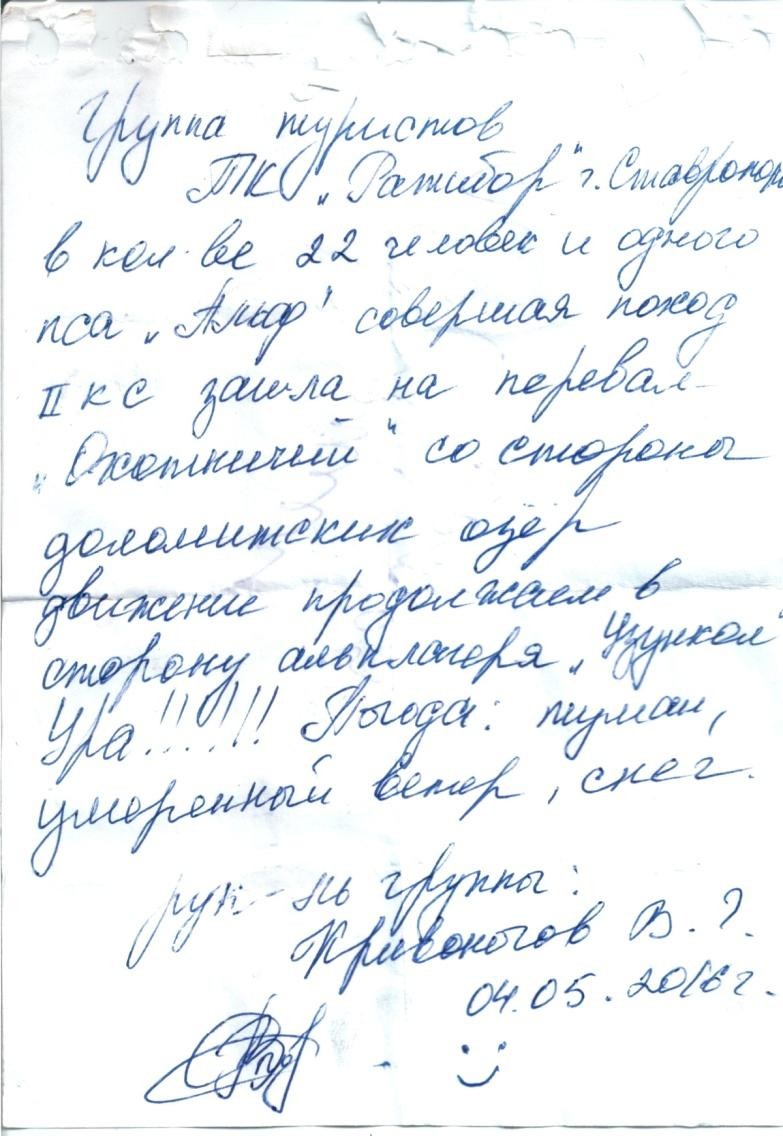 Группа туристов
ТК „Ратибор" г. Ставрополь
в кол-ве 22 человек и одного
пса „Альф" совершая поход
II кс зашла на перевал
„Охотничий" со стороны
доломитских озёр
движение продолжаем в
сторону альплагеря „Узункол"
Ура!!!...!!! Погода: туман,
умеренный ветер, снег.
рук-ль группы:
Кривоногов В. Г.
04.05.2016 г.